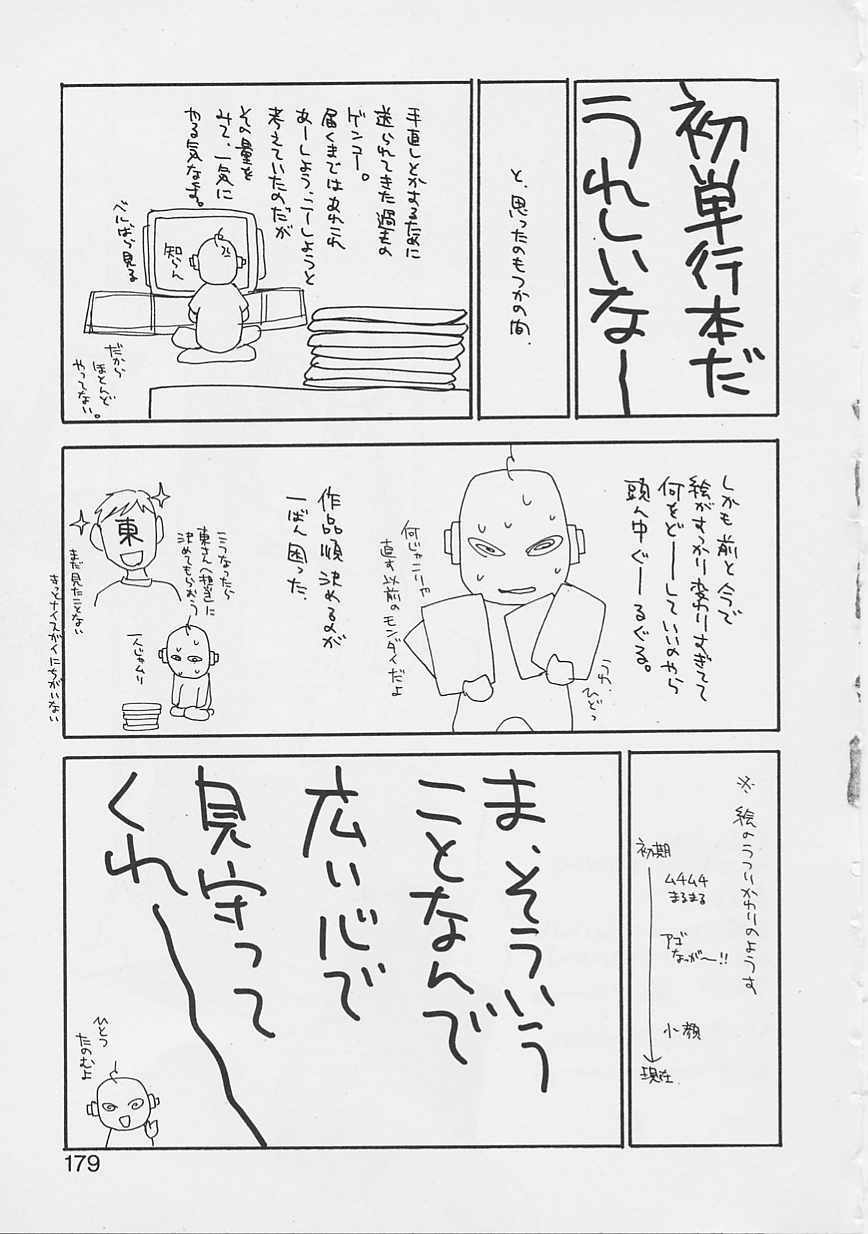 初単行本だ
うれしいなー
と、思ったのもつかの間、
手直しとかするために
送られてきた過去の
ゲンコー。
届くまではあれこれ
あーしよう、こーしようと
考えていたのだが
その量を
みて、一気に
やる気なよす。
べにばら見る
知らん
だから
ほとんど
やってない。
しかも前と今で
絵がすっかり変わりすぎてて
何をどーしていいのやら
頭ん中ぐーるぐる。
うわ、
ひどっ
何じゃこりゃ
直す以前のモンダイだよ
作品順決めるのが
一ばん困った。
こうなったら
東さん(担当)に
決めてもらおう
一人じゃムリ
東
まだ見たことない
きっとナイスガイにちがいない
※絵のうつりかわりのようす
初期
ムチムチ
まるまる
アゴ
なっが〜!!
小顔
現在
ま、そういう
ことなんで
広い心で
見守って
くれ〜
ひとつ
たのむよ
179